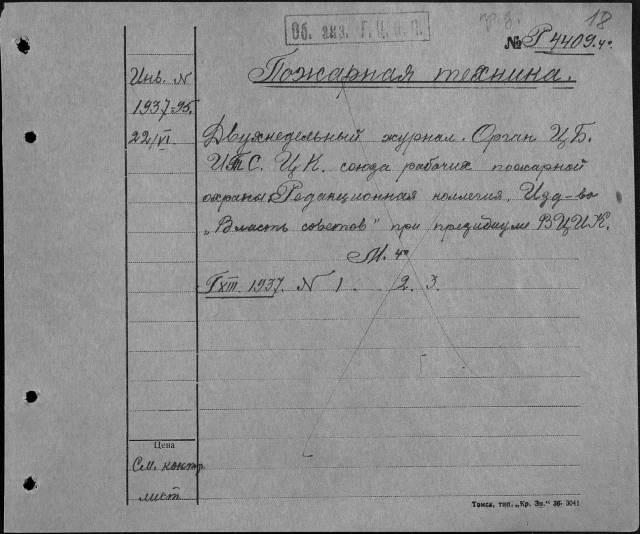 Об. экз. Г. Ц. К. П.
18
№ Р 4409. 4°
Пожарная техника.
Инв. N
1937-95.
22/VI.
Двухнедельный журнал. Орган ЦБ.
ИТС. ЦК. союза рабочих пожарной
охраны. Редакционная коллегия. Изд-во
„Власть советов" при президиуме ВЦИК.
М. 4°
Г XIII. 1937. N 1. 2. 3.
Цена
См. контр
лист
Томск, тип. „Кр. Зн." 36- 3041